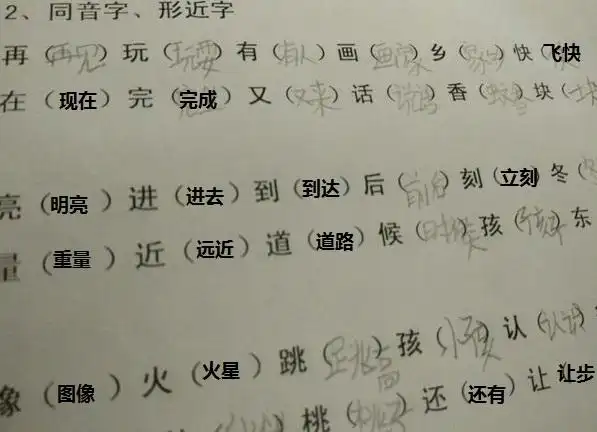 2、同音字、形近字
再（再见）玩（玩耍）有（有人）画（画家）乡（家乡）快（飞快
在（现在）完（完成）又（又来）话（说话）香（）块（一块
亮（明亮）进（进去）到（到达）后（前后）刻（立刻）冬（
量（重量）近（远近）道（道路）候（时候）孩（）东
像（图像）火（火星）跳（跳高）孩（小孩）认（认识）
桃（桃子）还（还有）让 让步